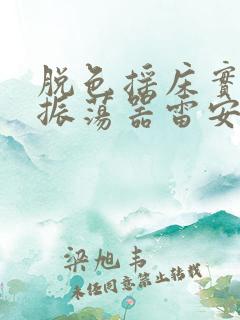 脱色摇床實
振荡器雷安
梁旭韦
未任同意禁止转载